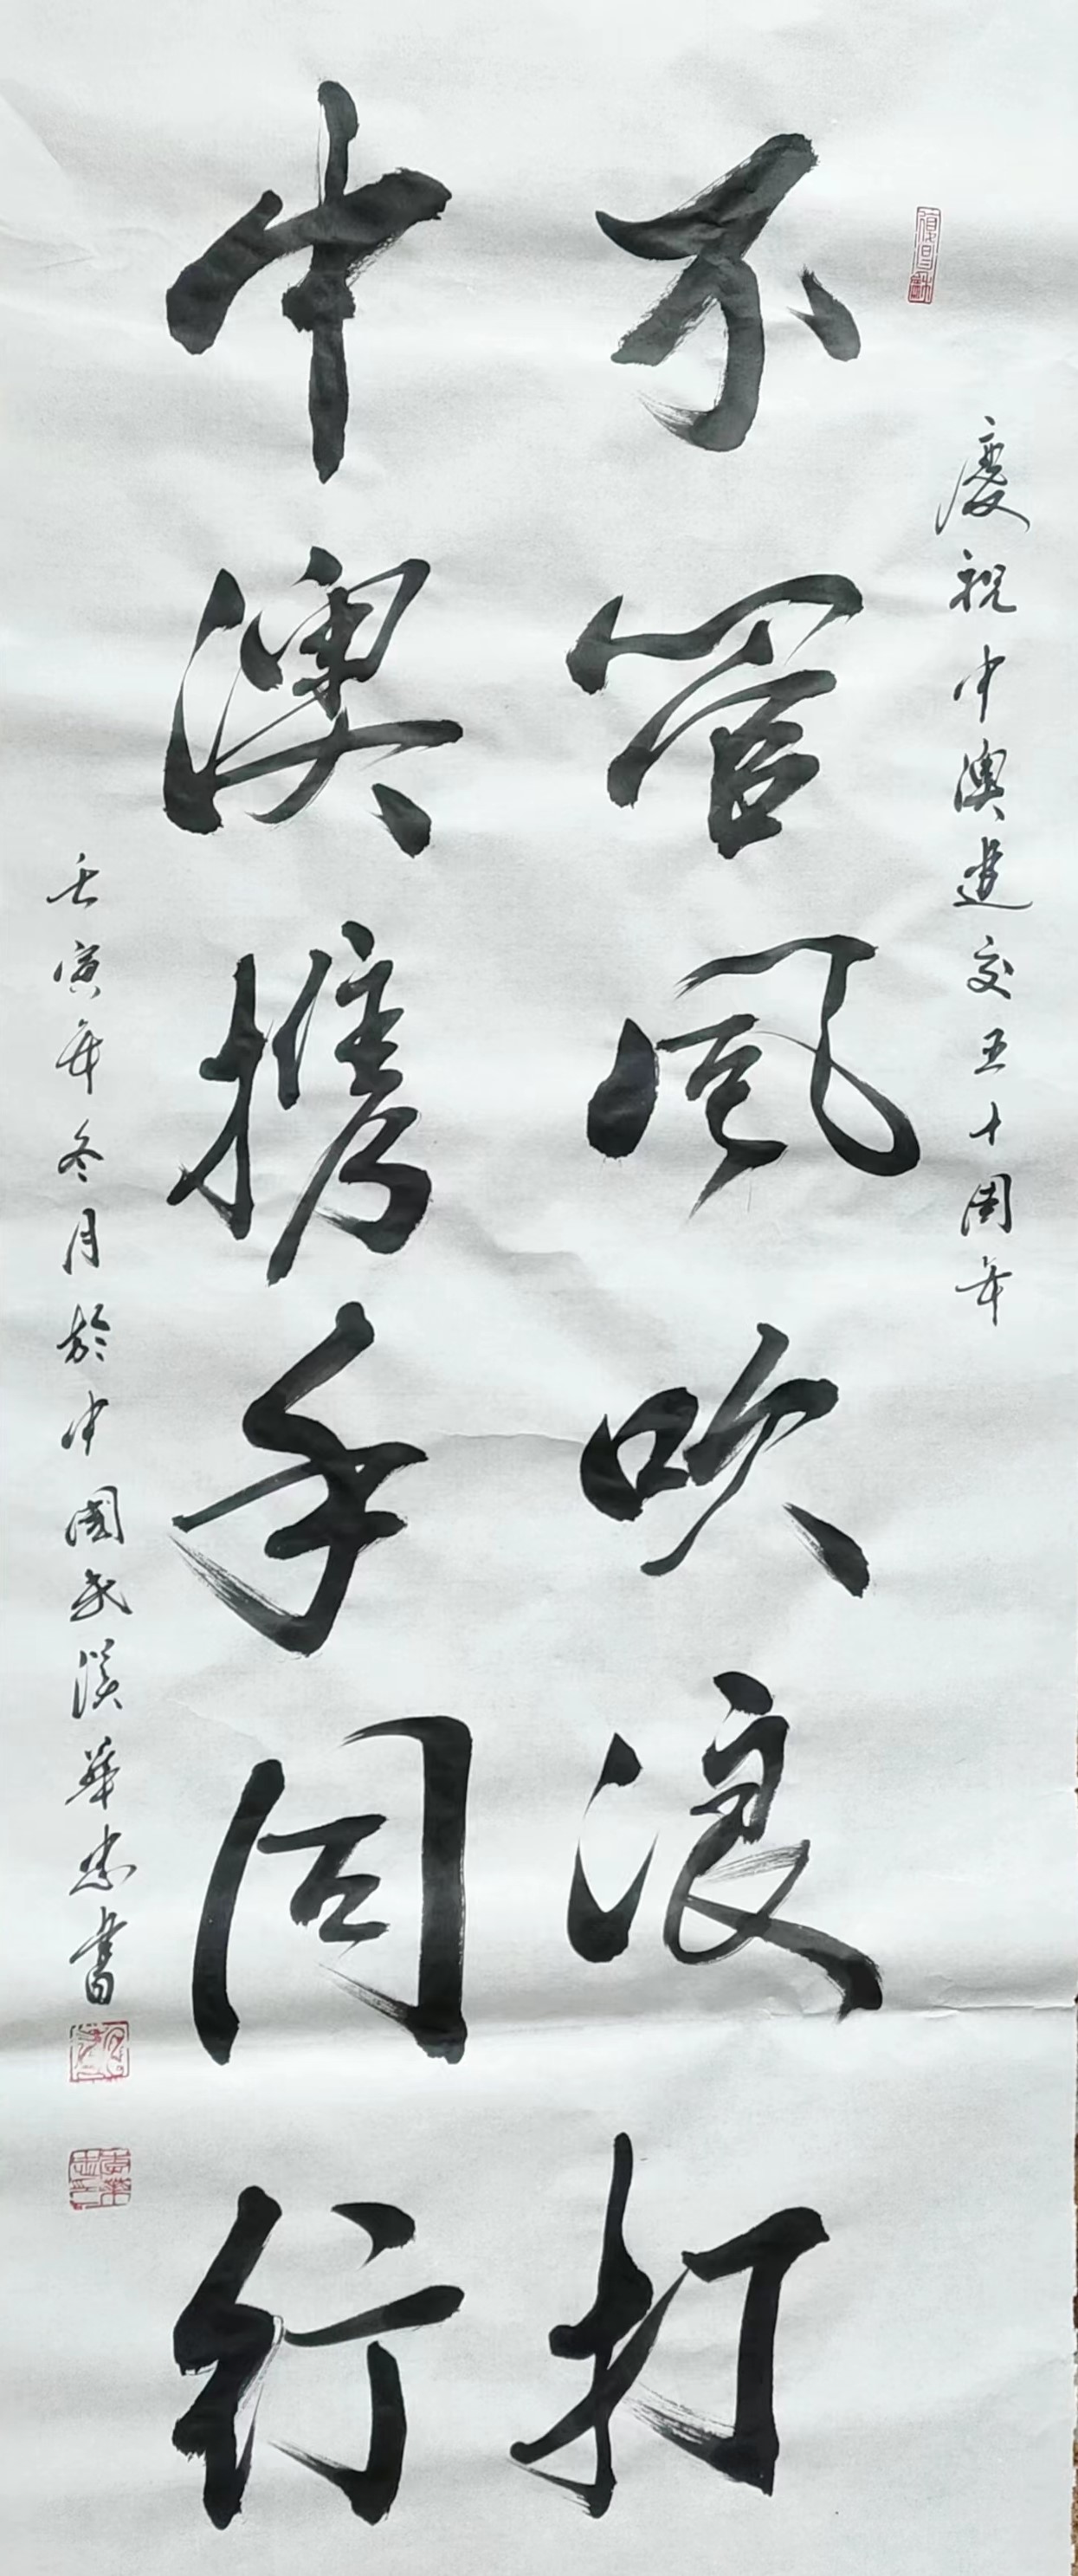 慶祝中澳建交五十周年
不管风吹浪打
中澳携手同行
壬寅年冬月於中國武漢華忠書